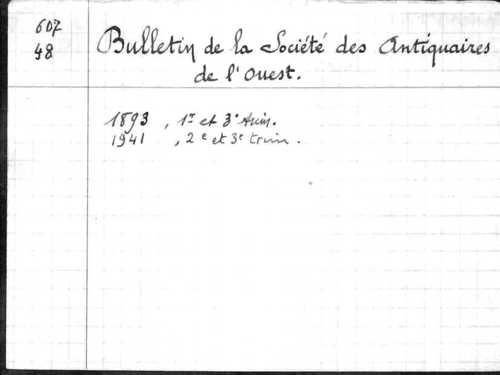 607
48
Bulletin de la Société des Antiquaires
de l'Ouest.
1893, 1er et 3e trim.
1941, 2e et 3e trim.